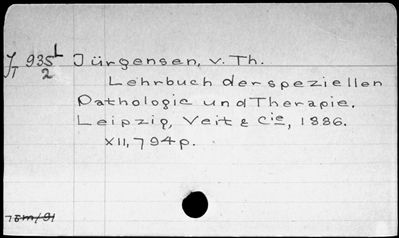 J 935 L Jürgensen, v. Th.
J1 2
Lehrbuch der speziellen
Pathologie und Therapie.
Leipzig, Veit & Cie, 1886.
XII, 794 p.